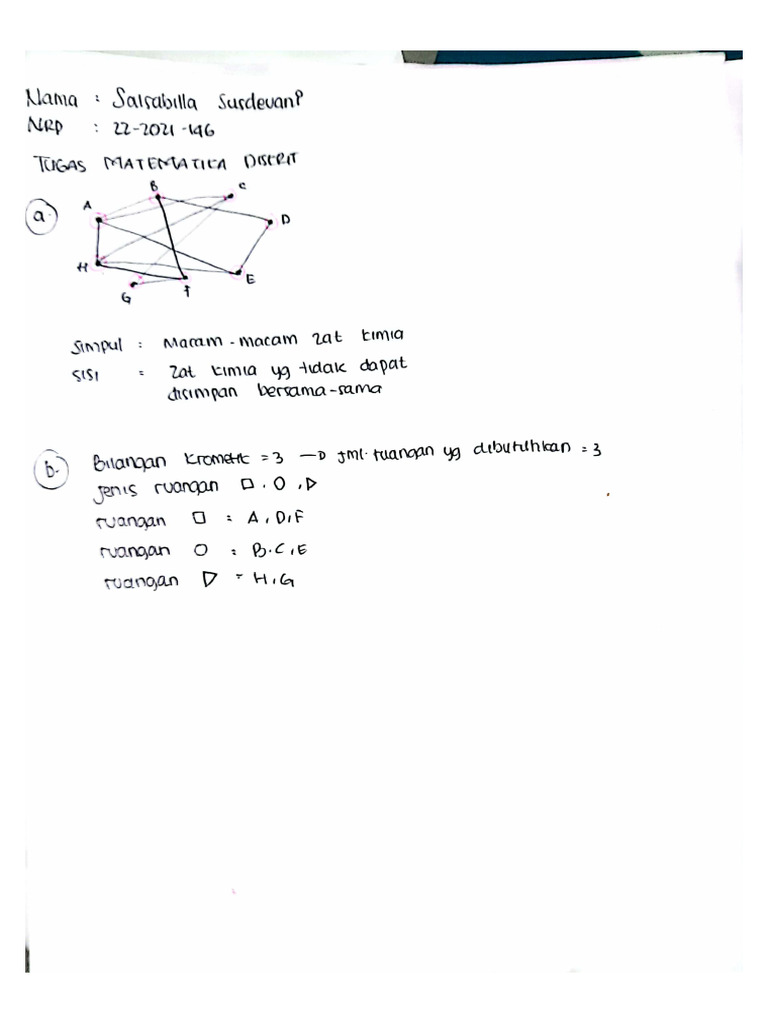 Nama : Salsabilla SusdevanP
NRP : 22-2021-146
TUGAS MATEMATIKA DISKRIT
a.
A
B
C
D
H
G
F
E
Simpul : Macam-macam zat kimia
SISI = Zat kimia yg tidak dapat
disimpan bersama-sama
b. Bilangan kromatik = 3 → jml. ruangan yg dibutuhkan = 3
jenis ruangan □, O, ▷
ruangan □ = A, D, F
ruangan O = B, C, E
ruangan ▷ = H, G